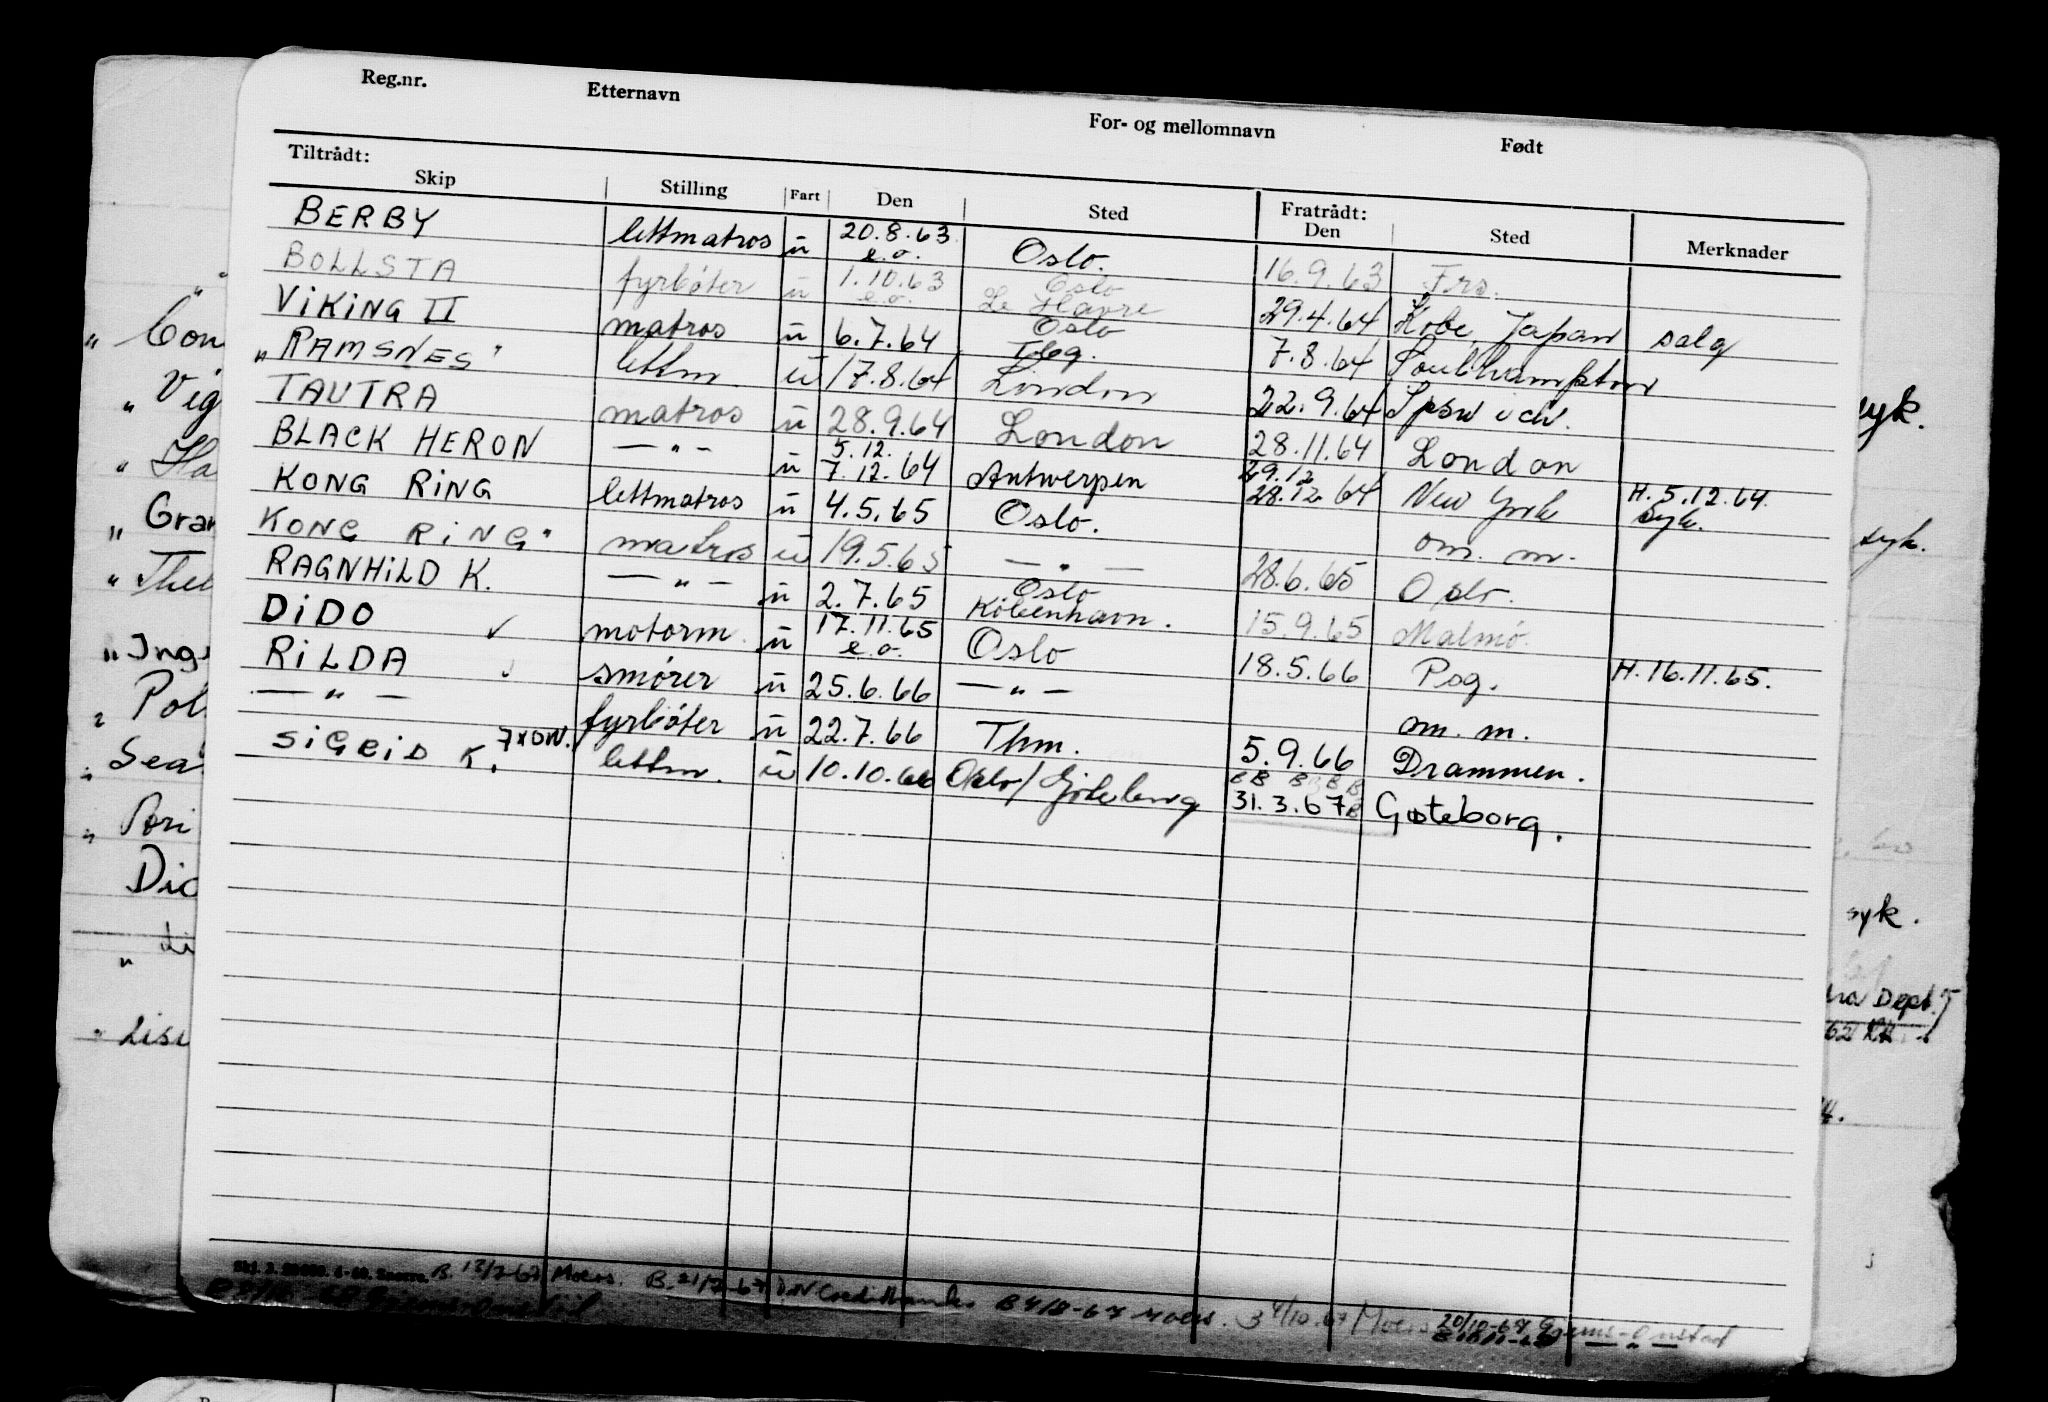 Reg.nr. Etternavn For- og mellomnavn Født
Tiltrådt: Fratrådt:
Skip Stilling Fart Den Sted Den Sted Merknader
BERBY lettmatros u 20.8.63 e.o. Oslo. 16.9.63 Frs.
BOLLSTA fyrbøter u 1.10.63 e.o. Oslo Le Havre 29.4.64 Kobe, Japan salg
VIKING II matros u 6.7.64 Oslo Tbg. 7.8.64 Southampton
"RAMSNES" lettm. u 17.8.64 London 22.9.64 Ipswich.
TAUTRA matros u 28.9.64 London 28.11.64 London
BLACK HERON — " — u 5.12. 7.12.64 Antwerpen 29.12 28.12.64 New York H. 5.12.64. syk.
KONG RING lettmatros u 4.5.65 Oslo. om. m.
KONG RING" matros u 19.5.65 — " — 28.6.65 Oslo.
RAGNHILD K. — " — u 2.7.65 Oslo København. 15.9.65 Malmø.
DIDO ✓ motorm. u 17.11.65 e.o. Oslo 18.5.66 Psg. H. 16.11.65.
RILDA smører u 25.6.66 — " — om. m.
— " — fyrbøter u 22.7.66 Thm. 5.9.66 Drammen.
SIGRID K. 7XDW. lettm. u 10.10.66 Oslo/Göteborg 31.3.67 Gøteborg.
BB B B B B
" Con
" Vig
" Ha
" Gran
" Thel
" Ing
Pol
Sea
Dic
" Li
syk.
syk.
syk.
Dept.
B. 13/7-67 Moers. B. 21/7-67 DN Creditbank B 4/8-67 Moers. B 4/10.67 Moers 20/10-67
— " —